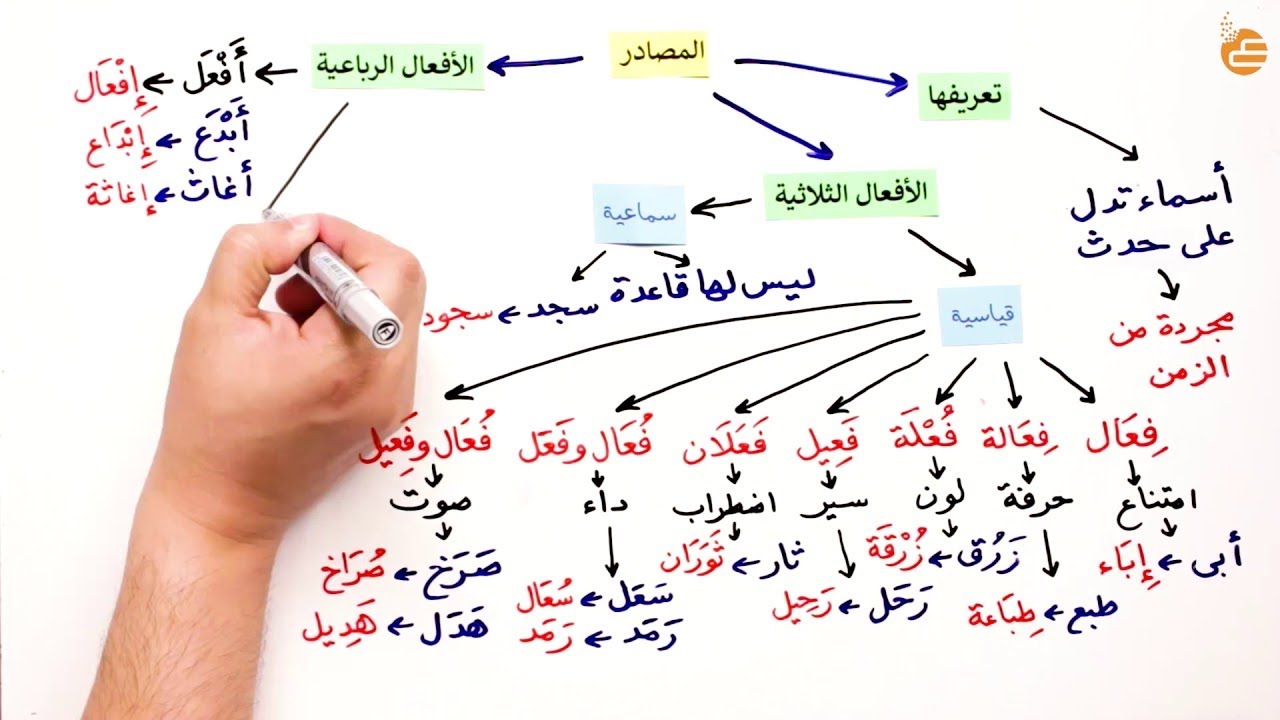 المصادر
تعريفها
أسماء تدل
على حدث
مجردة من
الزمن
الأفعال الثلاثية
سماعية
ليس لها قاعدة
سجد ← سجود
قياسية
فِعَال
امتناع
أبى ← إِبَاء
فِعَالة
حرفة
طبع ← طِبَاعة
فُعْلَة
لون
زَرُق ← زُرْقَة
فَعِيل
سير
رَحَل ← رَحِيل
فَعَلَان
اضطراب
ثار ← ثَوَرَان
فُعَال وفَعَل
داء
سَعَل ← سُعَال
رَمَد ← رَمَد
فُعَال وفَعِيل
صوت
صَرَخ ← صُرَاخ
هَدَل ← هَدِيل
الأفعال الرباعية
أَفْعَل ← إِفْعَال
أَبْدَع ← إِبْدَاع
أغاث ← إغاثة